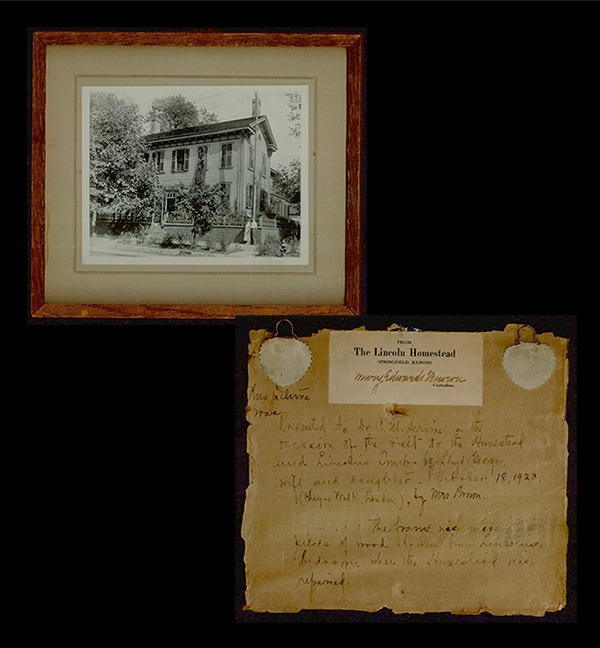 FROM
The Lincoln Homestead
SPRINGFIELD, ILLINOIS
Mary Edwards Brown
Custodian.
This picture
was
Presented to Dr C. M. Service on the
occasion of the visit to the Homestead
and Lincoln's Tomb Lloyd George
wife and daughter. October 18, 1923.
(Cheyne Walk, London), by Mrs Brown.
The frame was made
pieces of wood from Lincoln's
bedroom when the Homestead was
repaired.